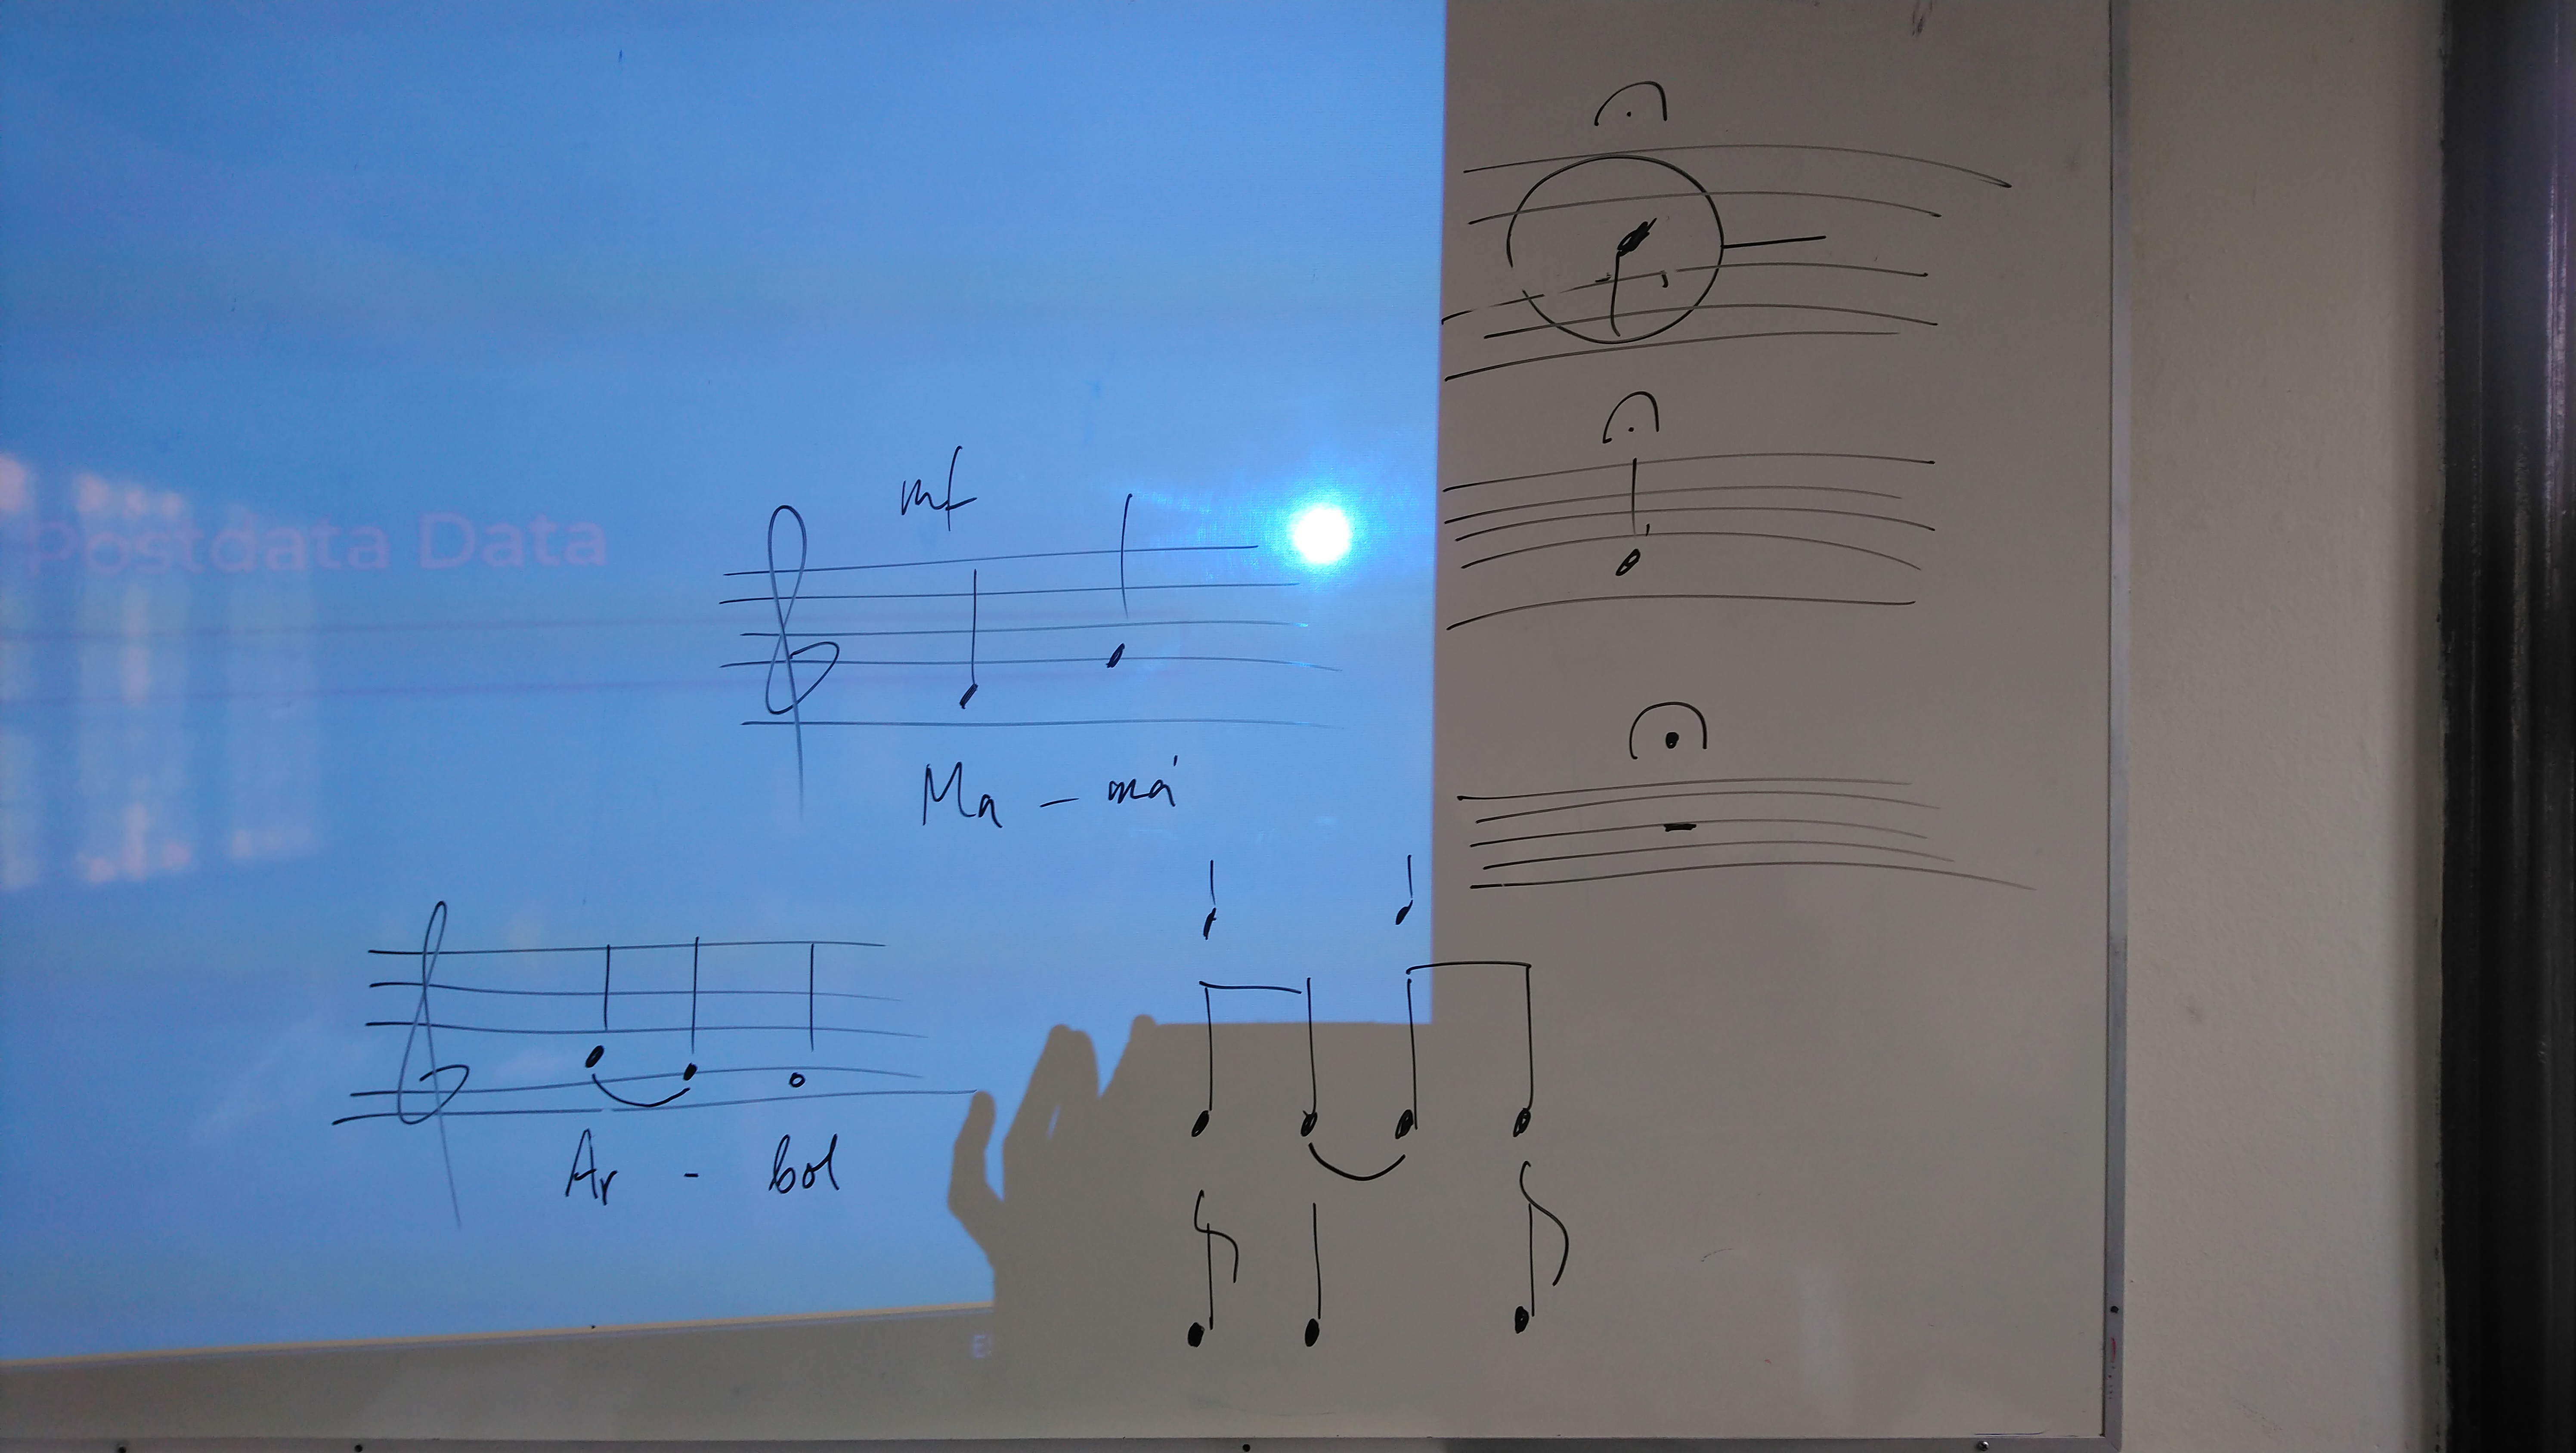 Postdata Data
mf
Ma - má
Ar - bol